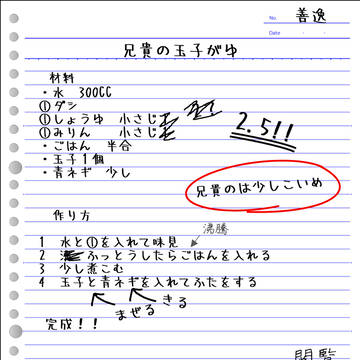 No. 善逸
Date
兄貴の玉子がゆ
材料
・水 300CC
①ダシ
①しょうゆ 小さじ
①みりん 小さじ
2.5!!
・ごはん 半合
・玉子1個
・青ネギ 少し
兄貴のは少しこいめ
作り方
沸騰
1 水と①を入れて味見
2 ふっとうしたらごはんを入れる
3 少し煮こむ
4 玉子と青ネギを入れてふたをする
まぜる きる
完成!!
閲覧